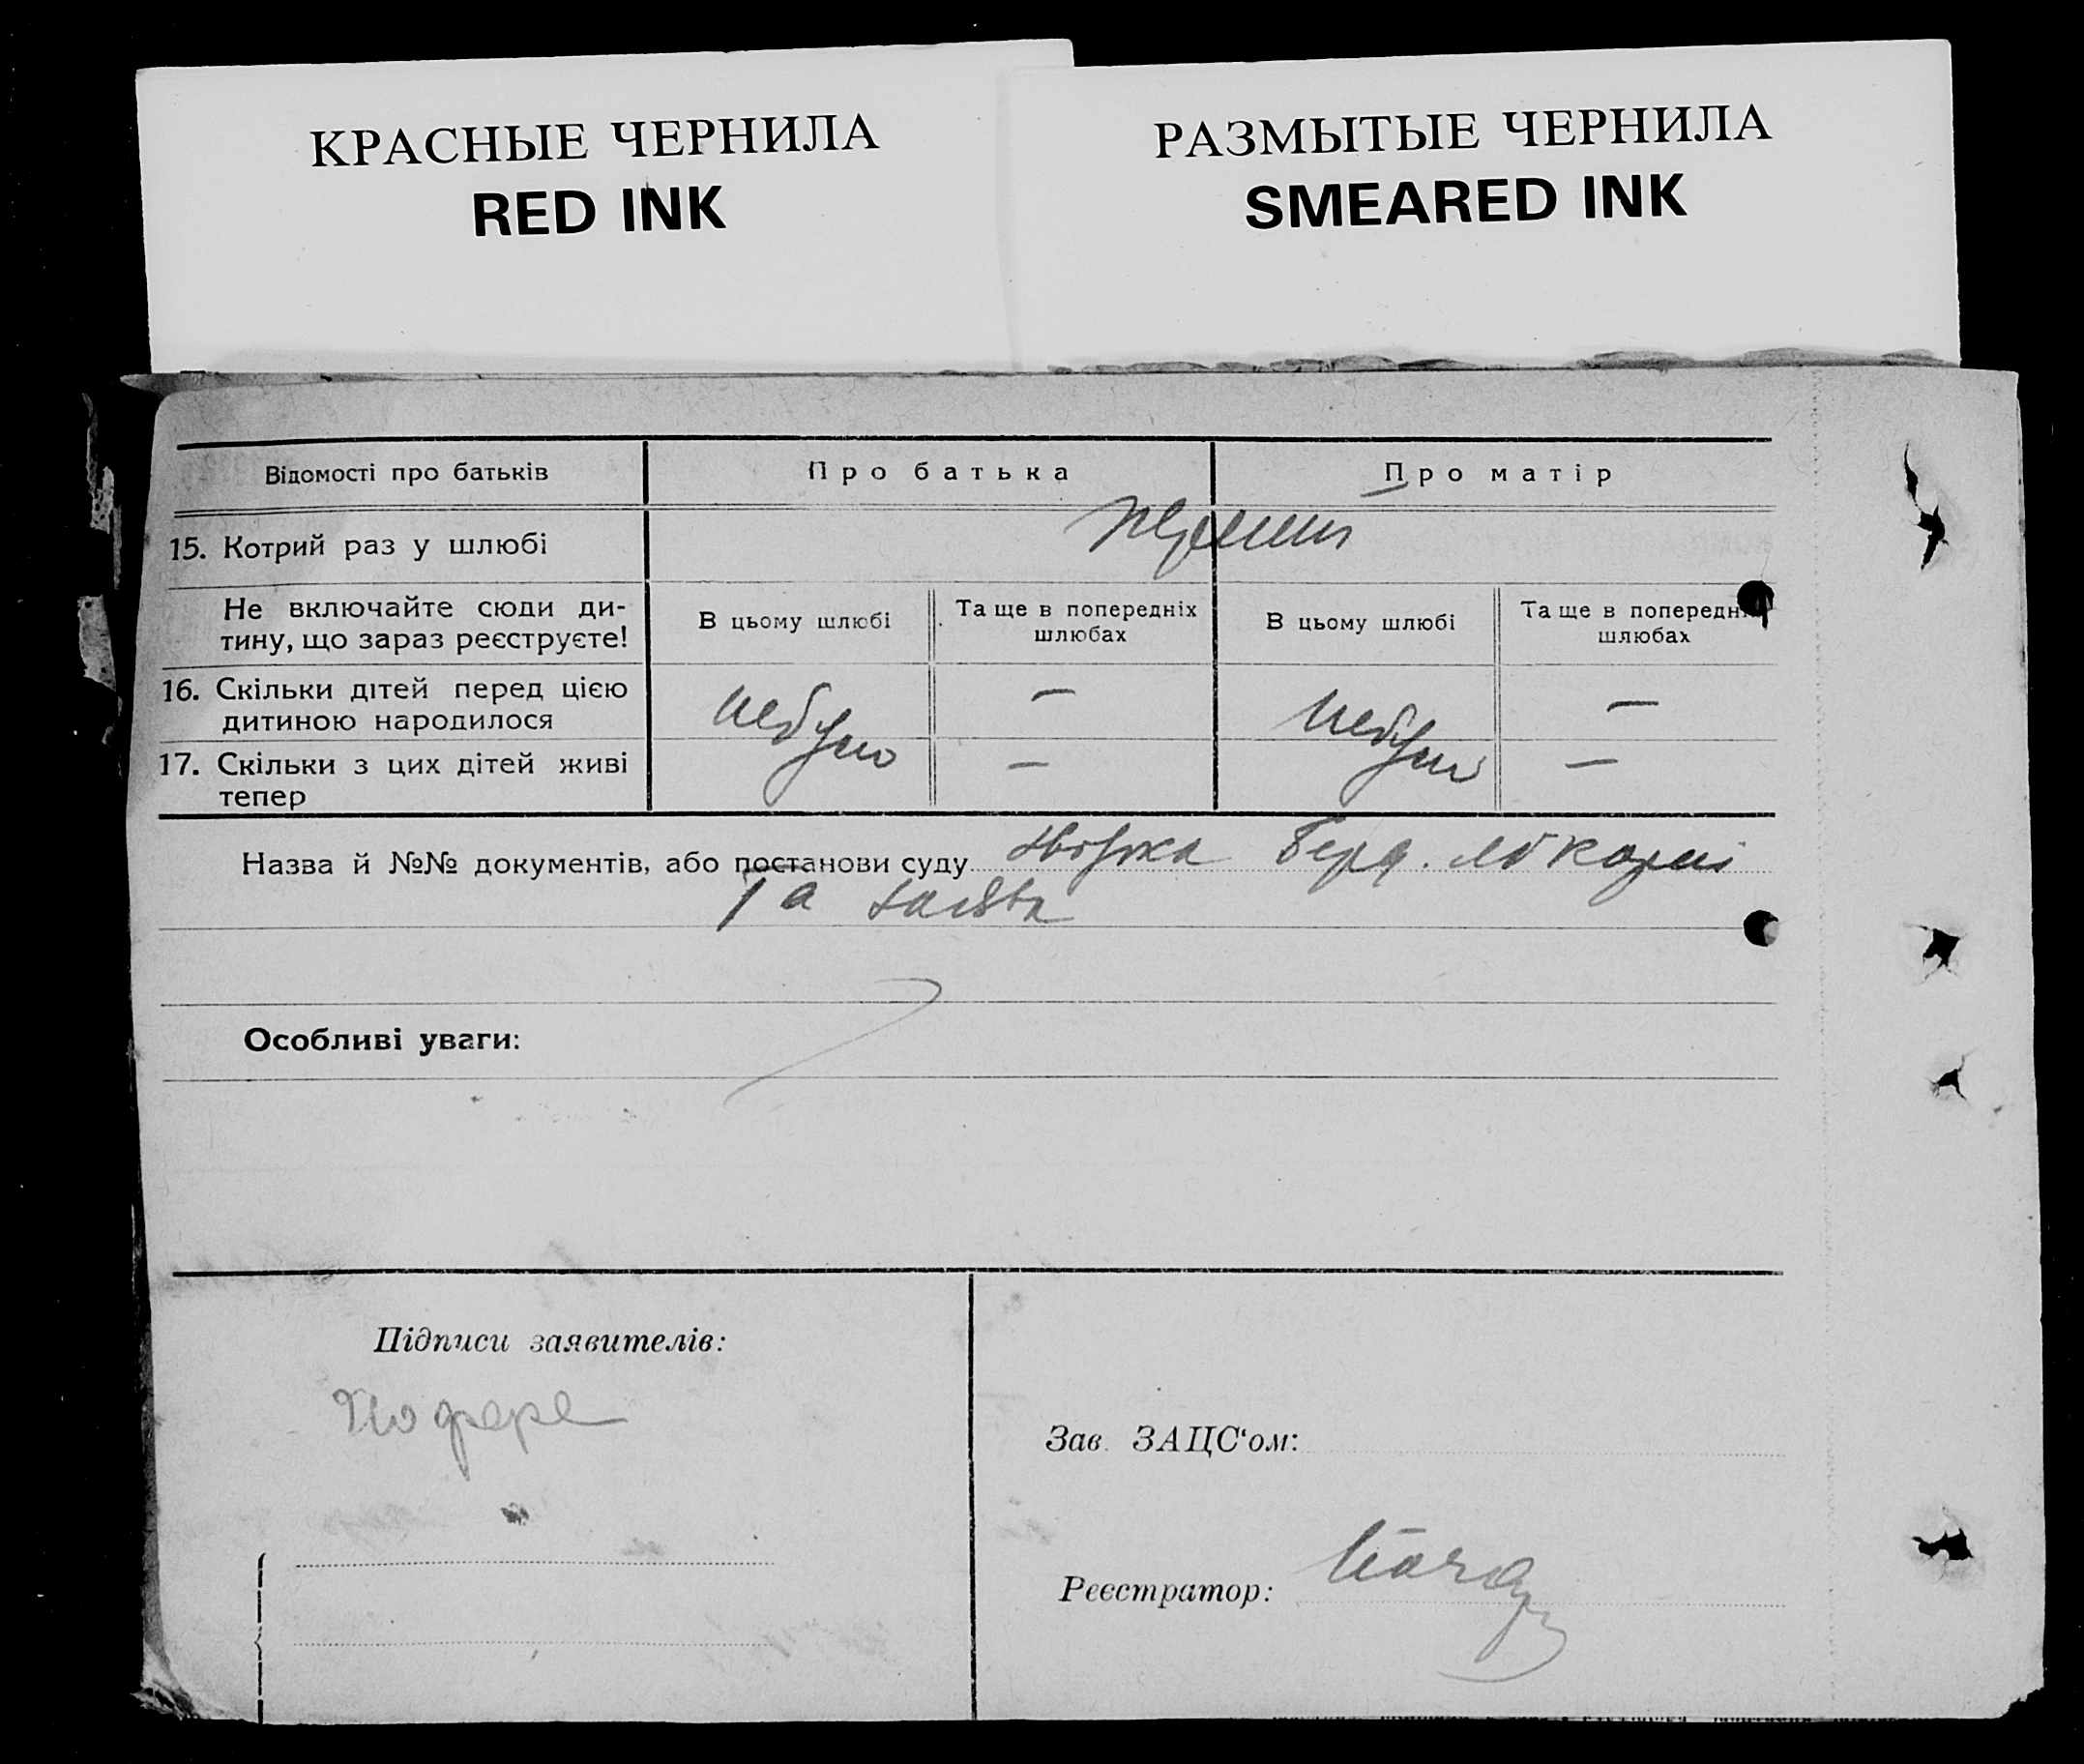 КРАСНЫЕ ЧЕРНИЛА
RED INK
РАЗМЫТЫЕ ЧЕРНИЛА
SMEARED INK
Відомості про батьків
Про батька
Про матір
15. Котрий раз у шлюбі
перший
Не включайте сюди ди-
тину, що зараз реєструєте!
В цьому шлюбі
Та ще в попередніх
шлюбах
В цьому шлюбі
Та ще в попередніх
шлюбах
16. Скільки дітей перед цією
дитиною народилося
небуло
—
небуло
—
17. Скільки з цих дітей живі
тепер
—
—
Назва й №№ документів, або постанови суду
Берд.
та заява
Особливі уваги:
Підписи заявителів:
Зав. ЗАЦС‘ом:
Реєстратор: